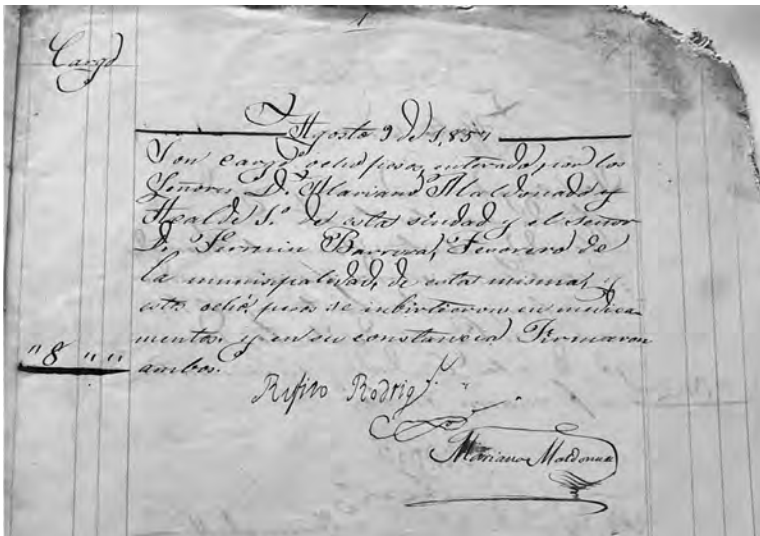 1
Cargo
Agosto 9 de 1,857
Son cargo ocho pesos enterados, por los
Señores D.n Mariano Maldonado y
Alcalde 1.o de esta siudad y el señor
D. Fermin Barrera, Tesorero de
la munisipalidad, de esta misma, y
estos ocho pesos se inbirtieron en medica-
mentos. y en su constancia Firmaron
ambos.
"8 " "
Rodrig.z
Mariano Maldonado